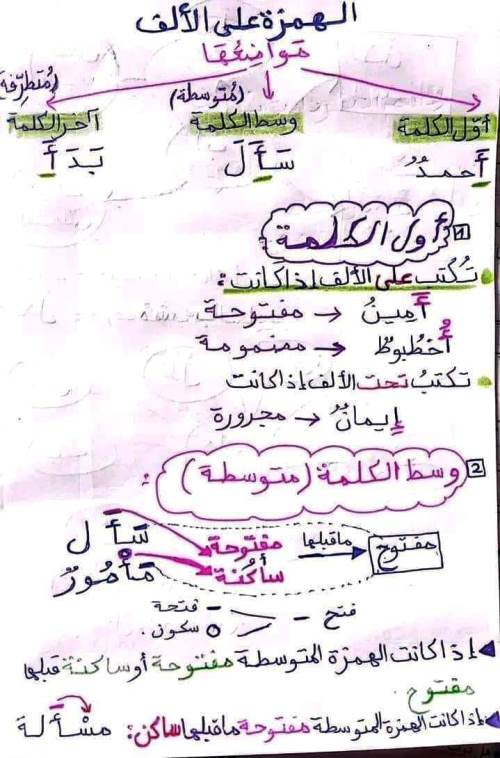 الهمزة على الألف
مَواضِعُها
أوّل الكلمة
وسط الكلمة (مُتوسطة)
آخر الكلمة (مُتطرِّفة)
أَحمدُ
سَأَلَ
بَدَأَ
1 أول الكلمة
تُكتب على الألف إذا كانت :
أَمِينُ → مفتوحة
أُخطُبوطٌ → مضمومة
تكتبُ تحت الألف إذا كانت
إِيمانٌ → مجرورة
2 وسط الكلمة (متوسطة) :
سَأَل مفتوحة ما قبلها مفتوح
مَأْمُورٌ ساكنة
فتح - فتحة
سكون.
إذا كانت الهمزة المتوسطة مفتوحة أو ساكنة قبلها
مفتوح.
إذا كانت الهمزة المتوسطة مفتوحة ما قبلها ساكن: مسْأَلة